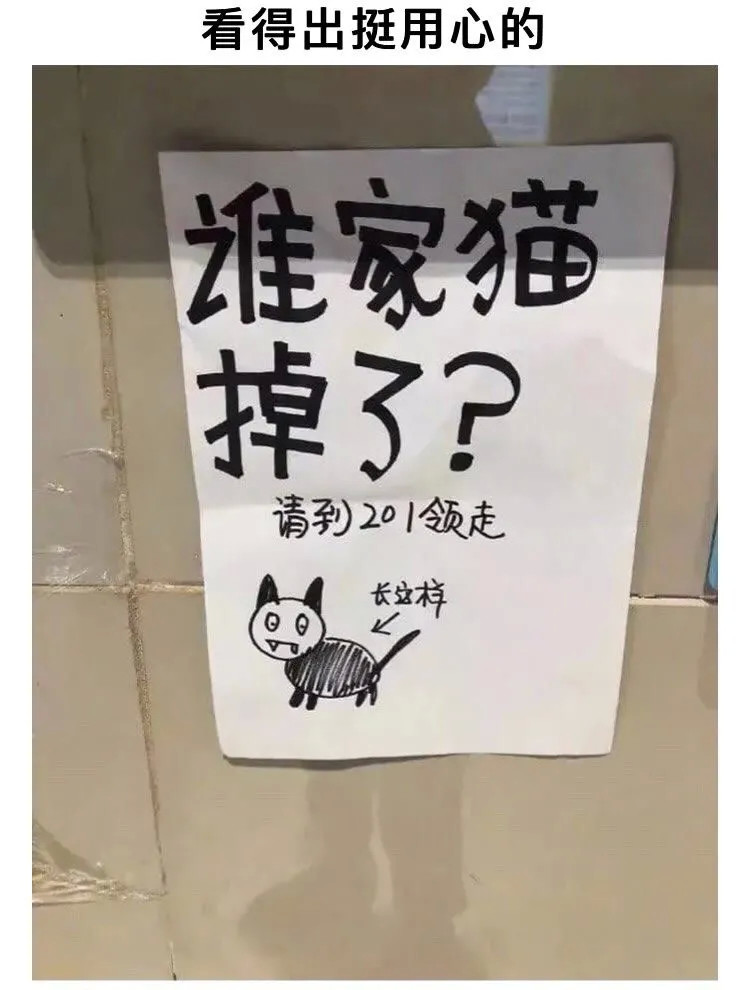 看得出挺用心的
谁家猫
掉了?
请到201领走
长这样